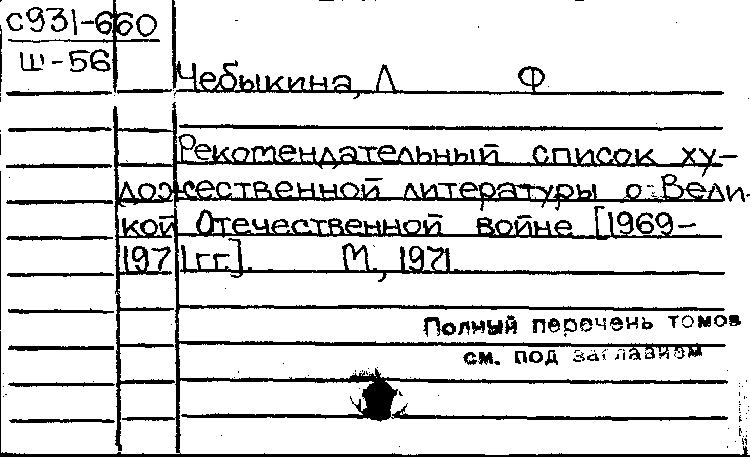 с931-660
Ш-56
Чебыкина, Л Ф
Рекомендательный список ху-
дожественной литературы о Вели-
кой Отечественной войне [1969-
1971гг.]. М., 1971.
Полный перечень томов
см. под заглавием